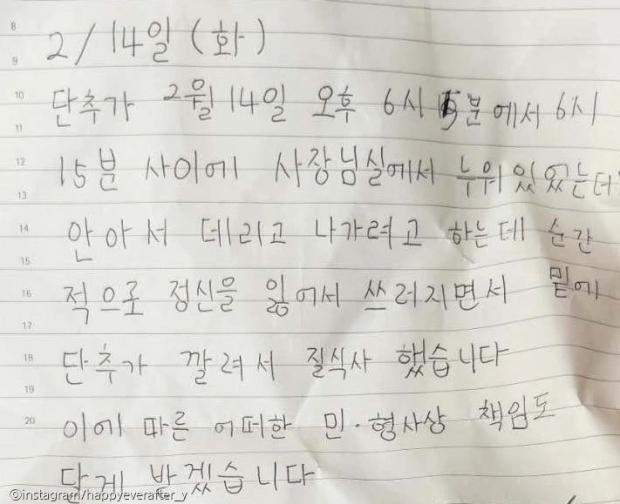 2/14일 (화)
단추가 2월 14일 오후 6시 5분에서 6시
15분 사이에 사장님실에서 누워있었는데
안아서 데리고 나가려고 하는데 순간
적으로 정신을 잃어서 쓰러지면서 밑에
단추가 깔려서 질식사 했습니다
이에 따른 어떠한 민·형사상 책임도
달게 받겠습니다
©instagram/happyeverafter_y
8
9
10
11
12
13
14
15
16
17
18
19
20